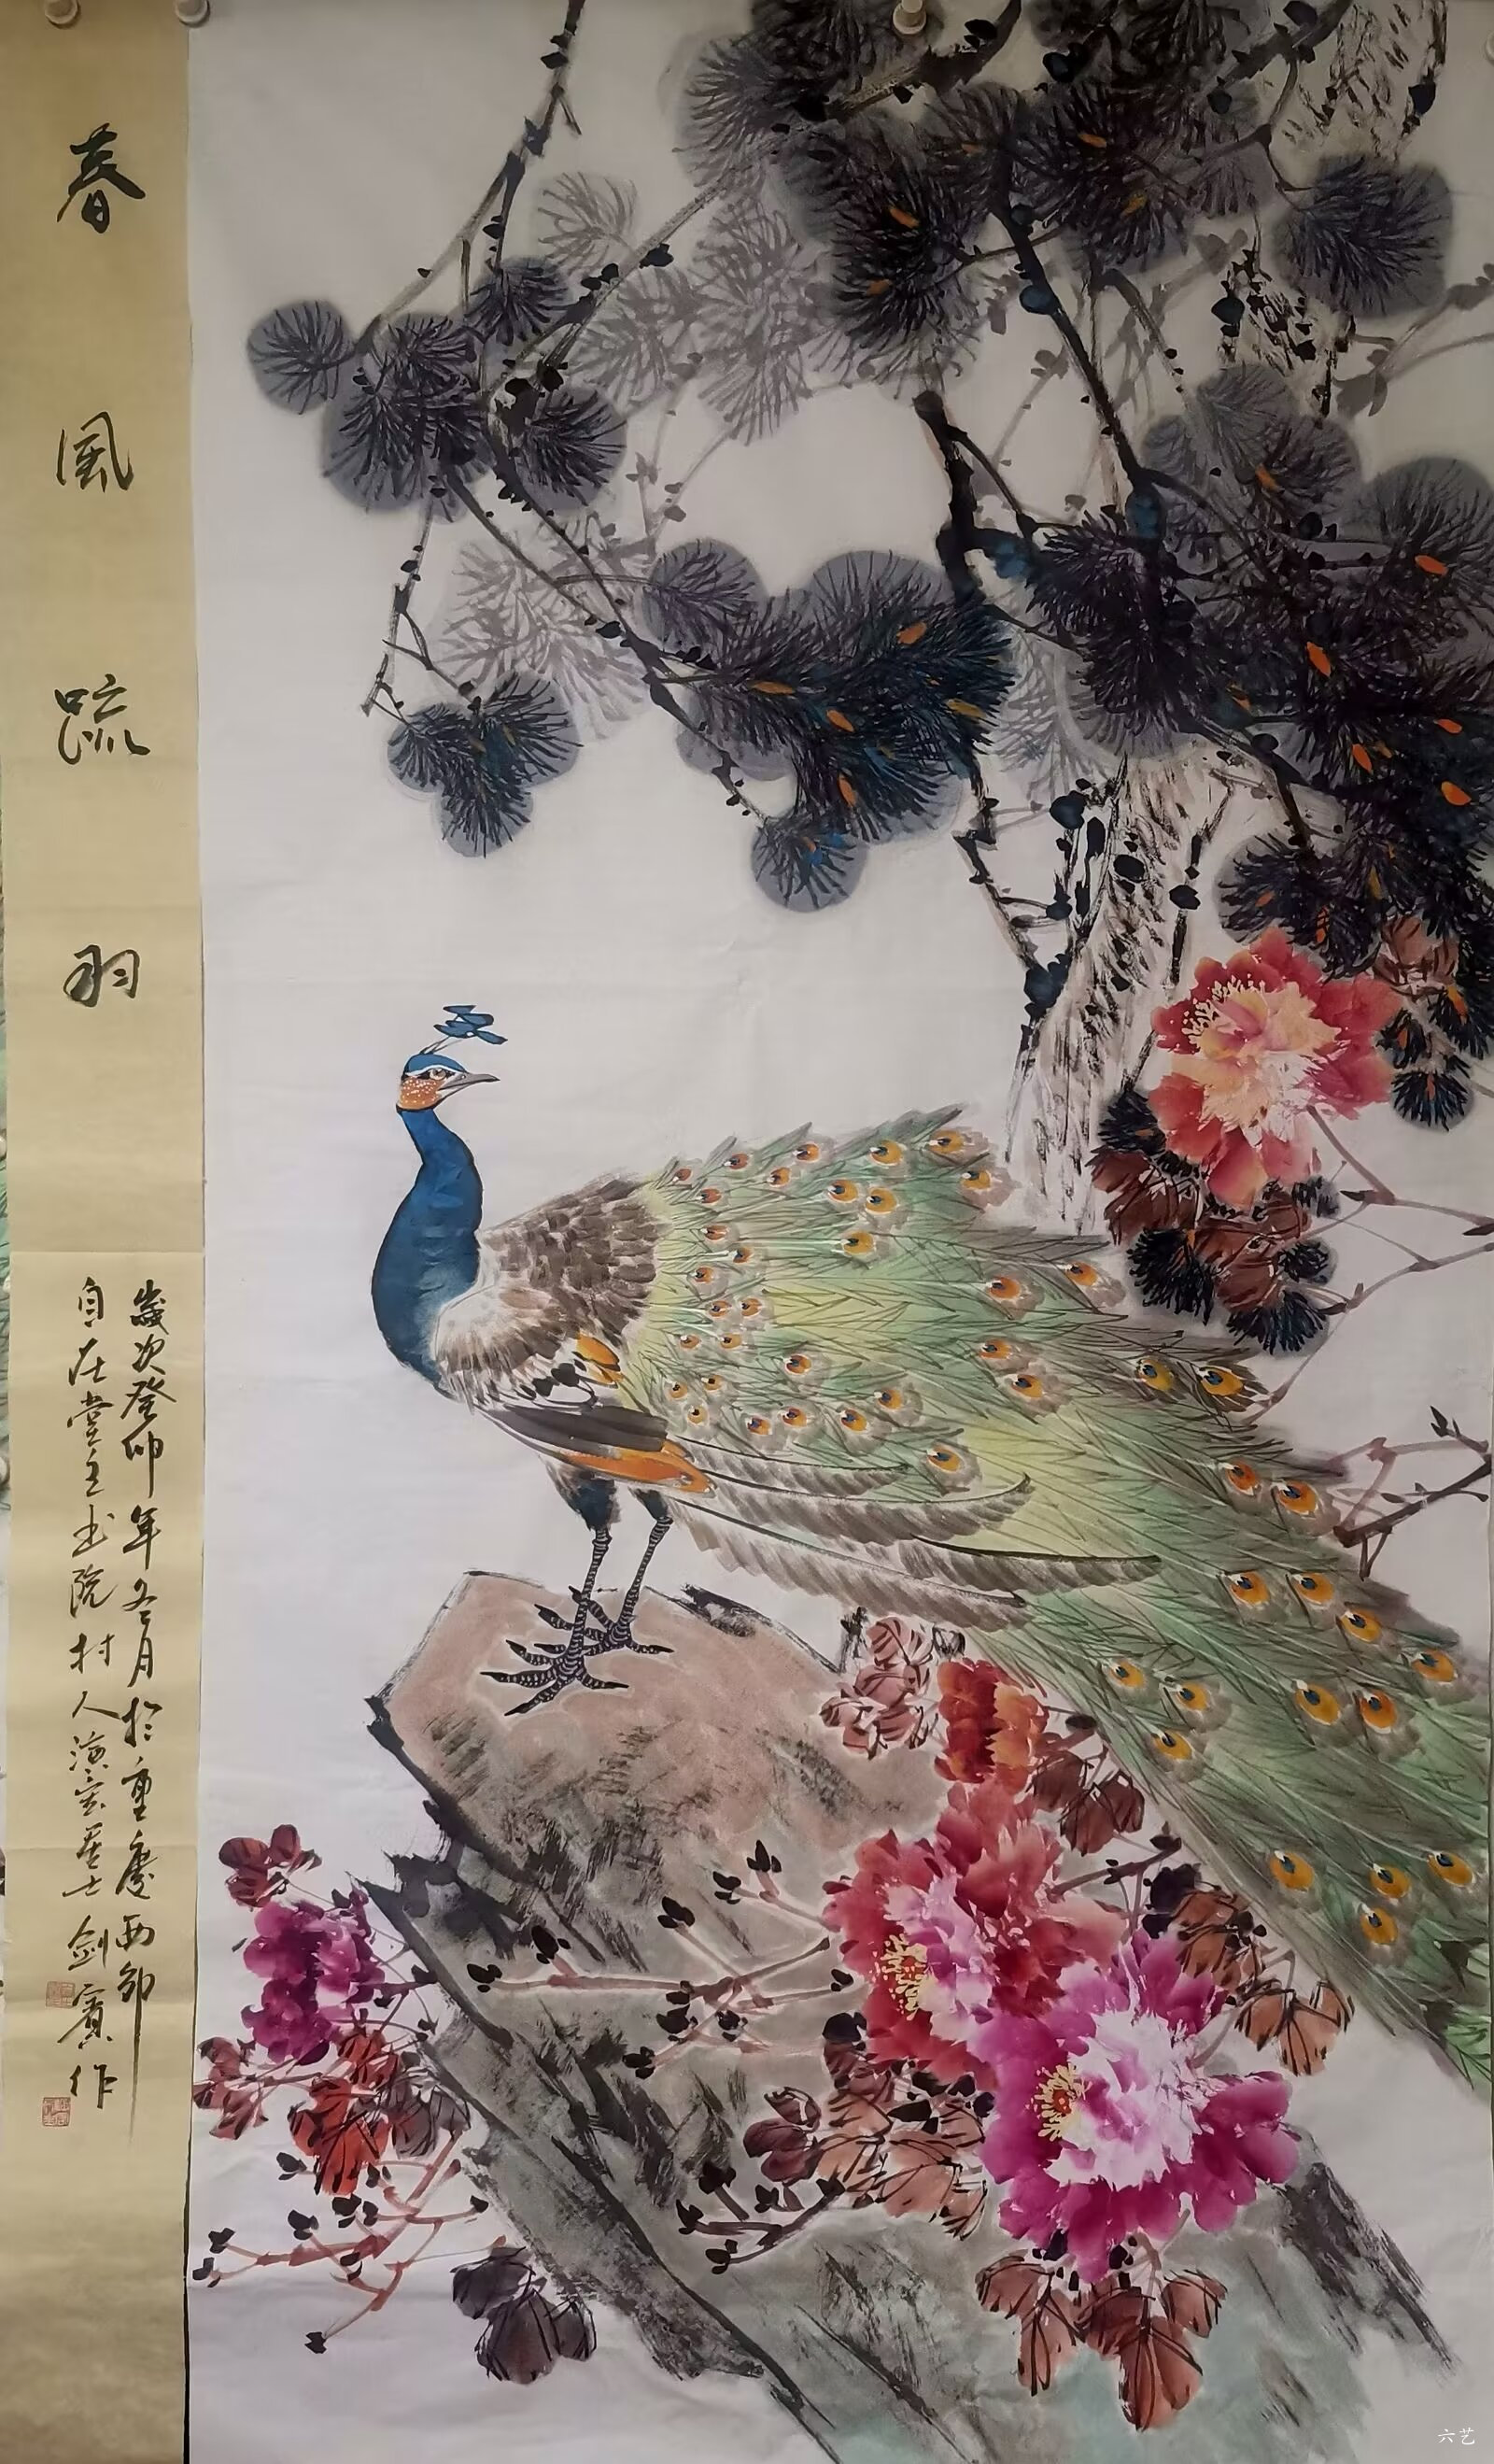 春風疏羽
歲次癸卯年冬月於重慶西部
自在堂主书院村人居士劍賓作
六艺